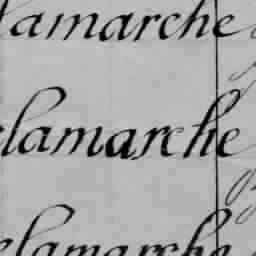 lamarche
elamarche
elamarche